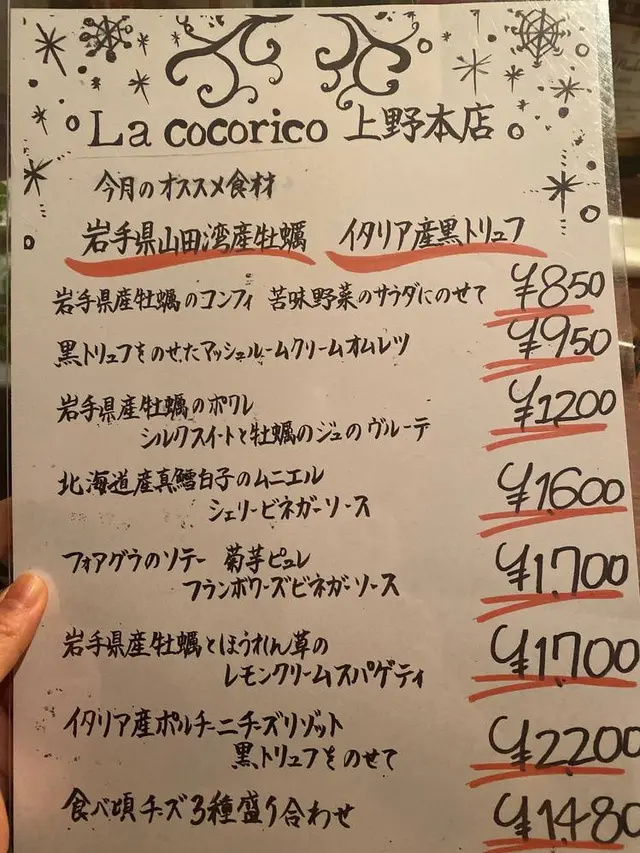 La cocorico 上野本店
今月のオススメ食材
岩手県山田湾産牡蠣 イタリア産黒トリュフ
岩手県産牡蠣のコンフィ 苦味野菜のサラダにのせて ¥850
黒トリュフをのせたマッシュルームクリームオムレツ ¥950
岩手県産牡蠣のポワレ
シルクスイートと牡蠣のジュのヴルーテ ¥1,200
北海道産真鱈白子のムニエル
シェリービネガーソース ¥1,600
フォアグラのソテー 菊芋ピュレ
フランボワーズビネガーソース ¥1,700
岩手県産牡蠣とほうれん草の
レモンクリームスパゲティ ¥1,700
イタリア産ポルチーニチーズリゾット
黒トリュフをのせて ¥2,200
食べ頃チーズ3種盛り合わせ ¥1,480